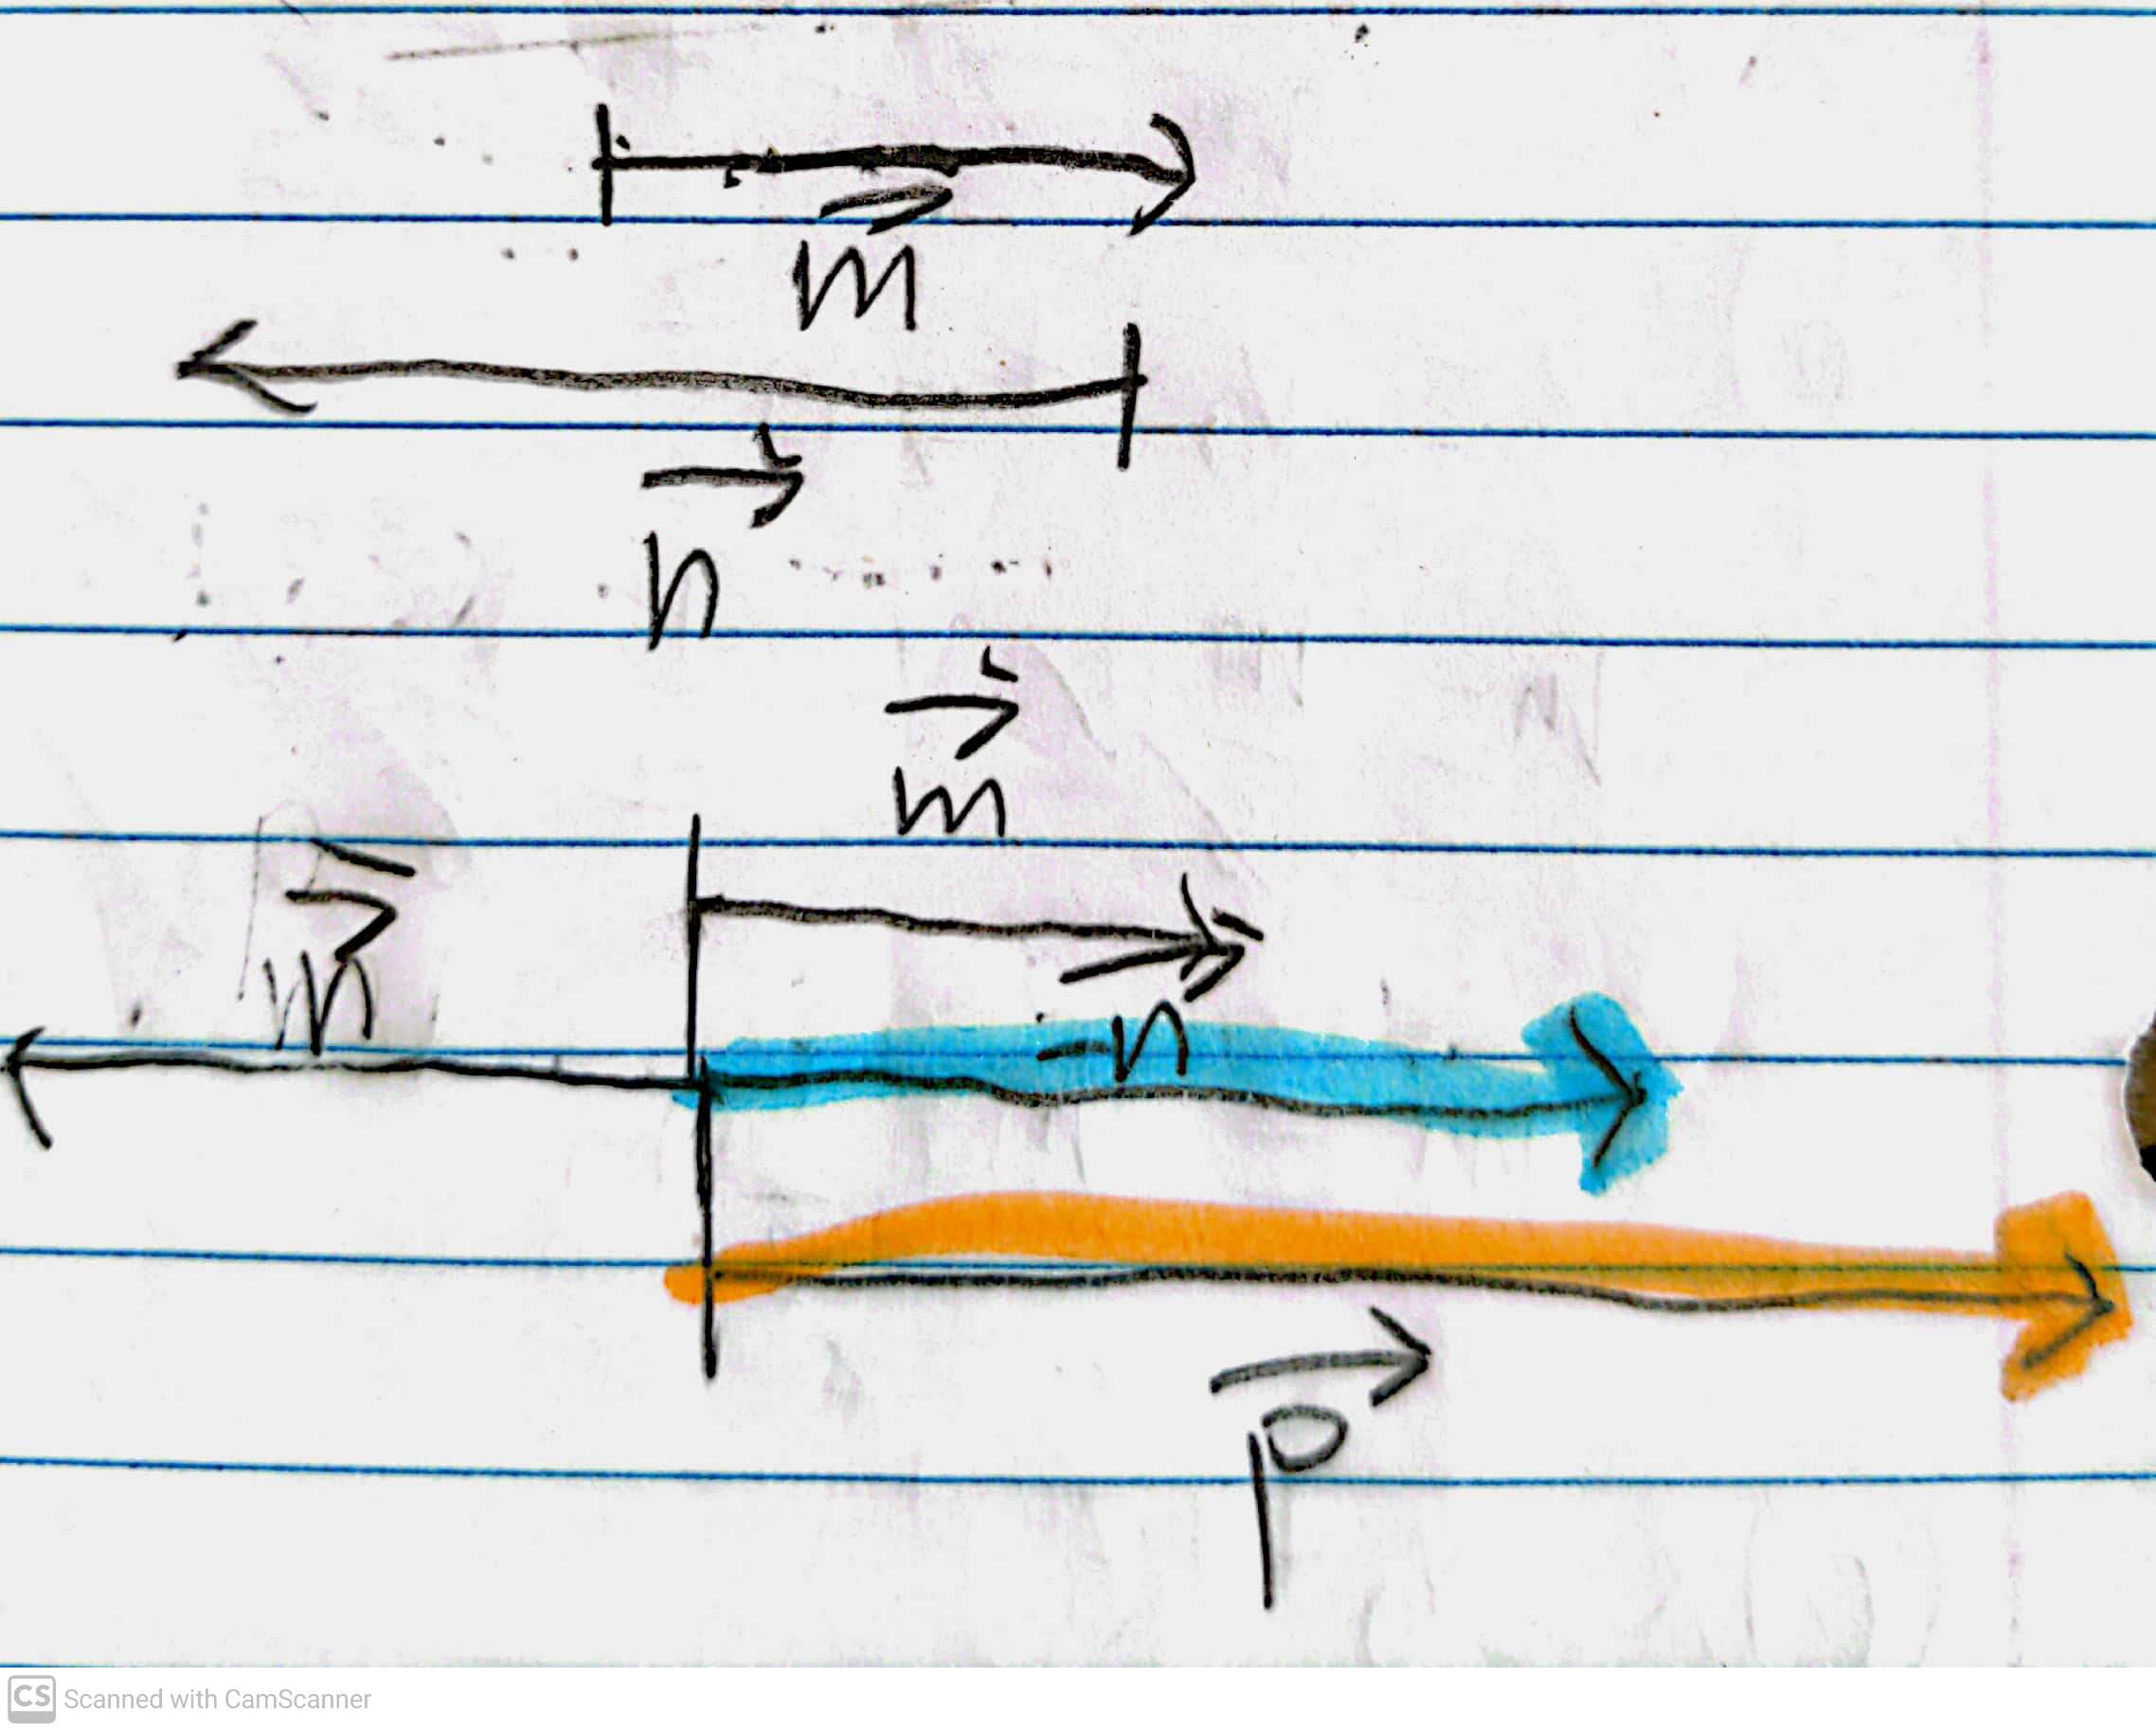 m⃗
n⃗
m⃗
m⃗
-n⃗
p⃗
CS Scanned with CamScanner